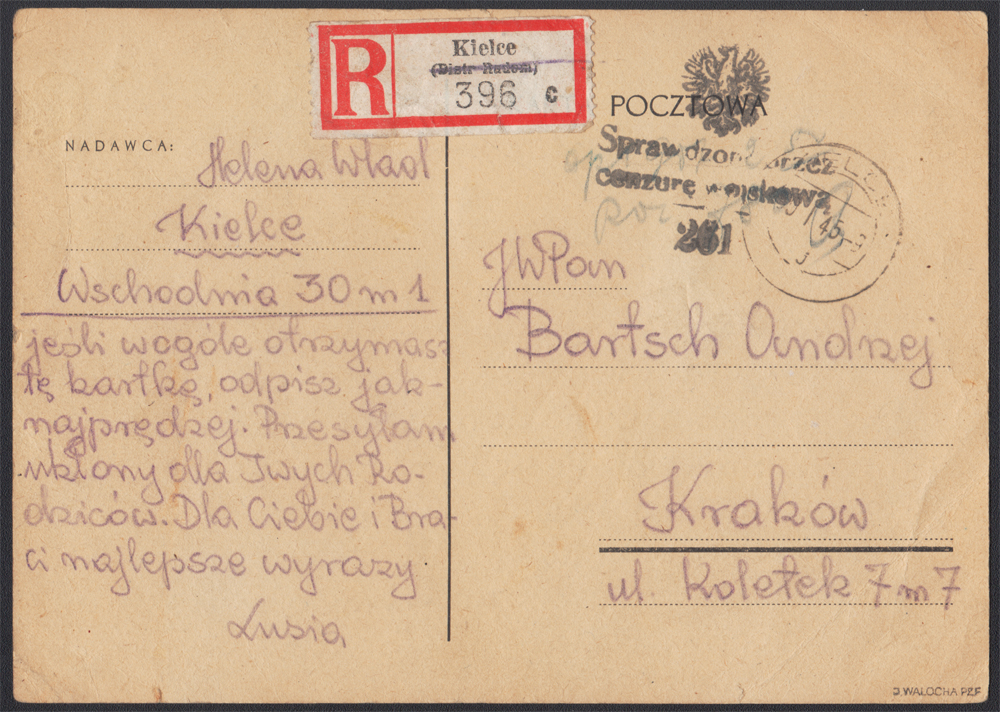 R
Kielce
(Distr Radom)
396 c
POCZTOWA
Sprawdzono przez
cenzurę wojskową
261
NADAWCA:
Helena Wład
Kielce
Wschodnia 30 m 1
jeśli wogóle otrzymasz
tę kartkę, odpisz jak-
najprędzej. Przesyłam
ukłony dla Twych Ro-
dziców. Dla Ciebie i Bra-
ci najlepsze wyrazy
Lusia
JWPan
Bartsch Andrzej
Kraków
ul. Koletek 7 m 7
J. WALOCHA PZF